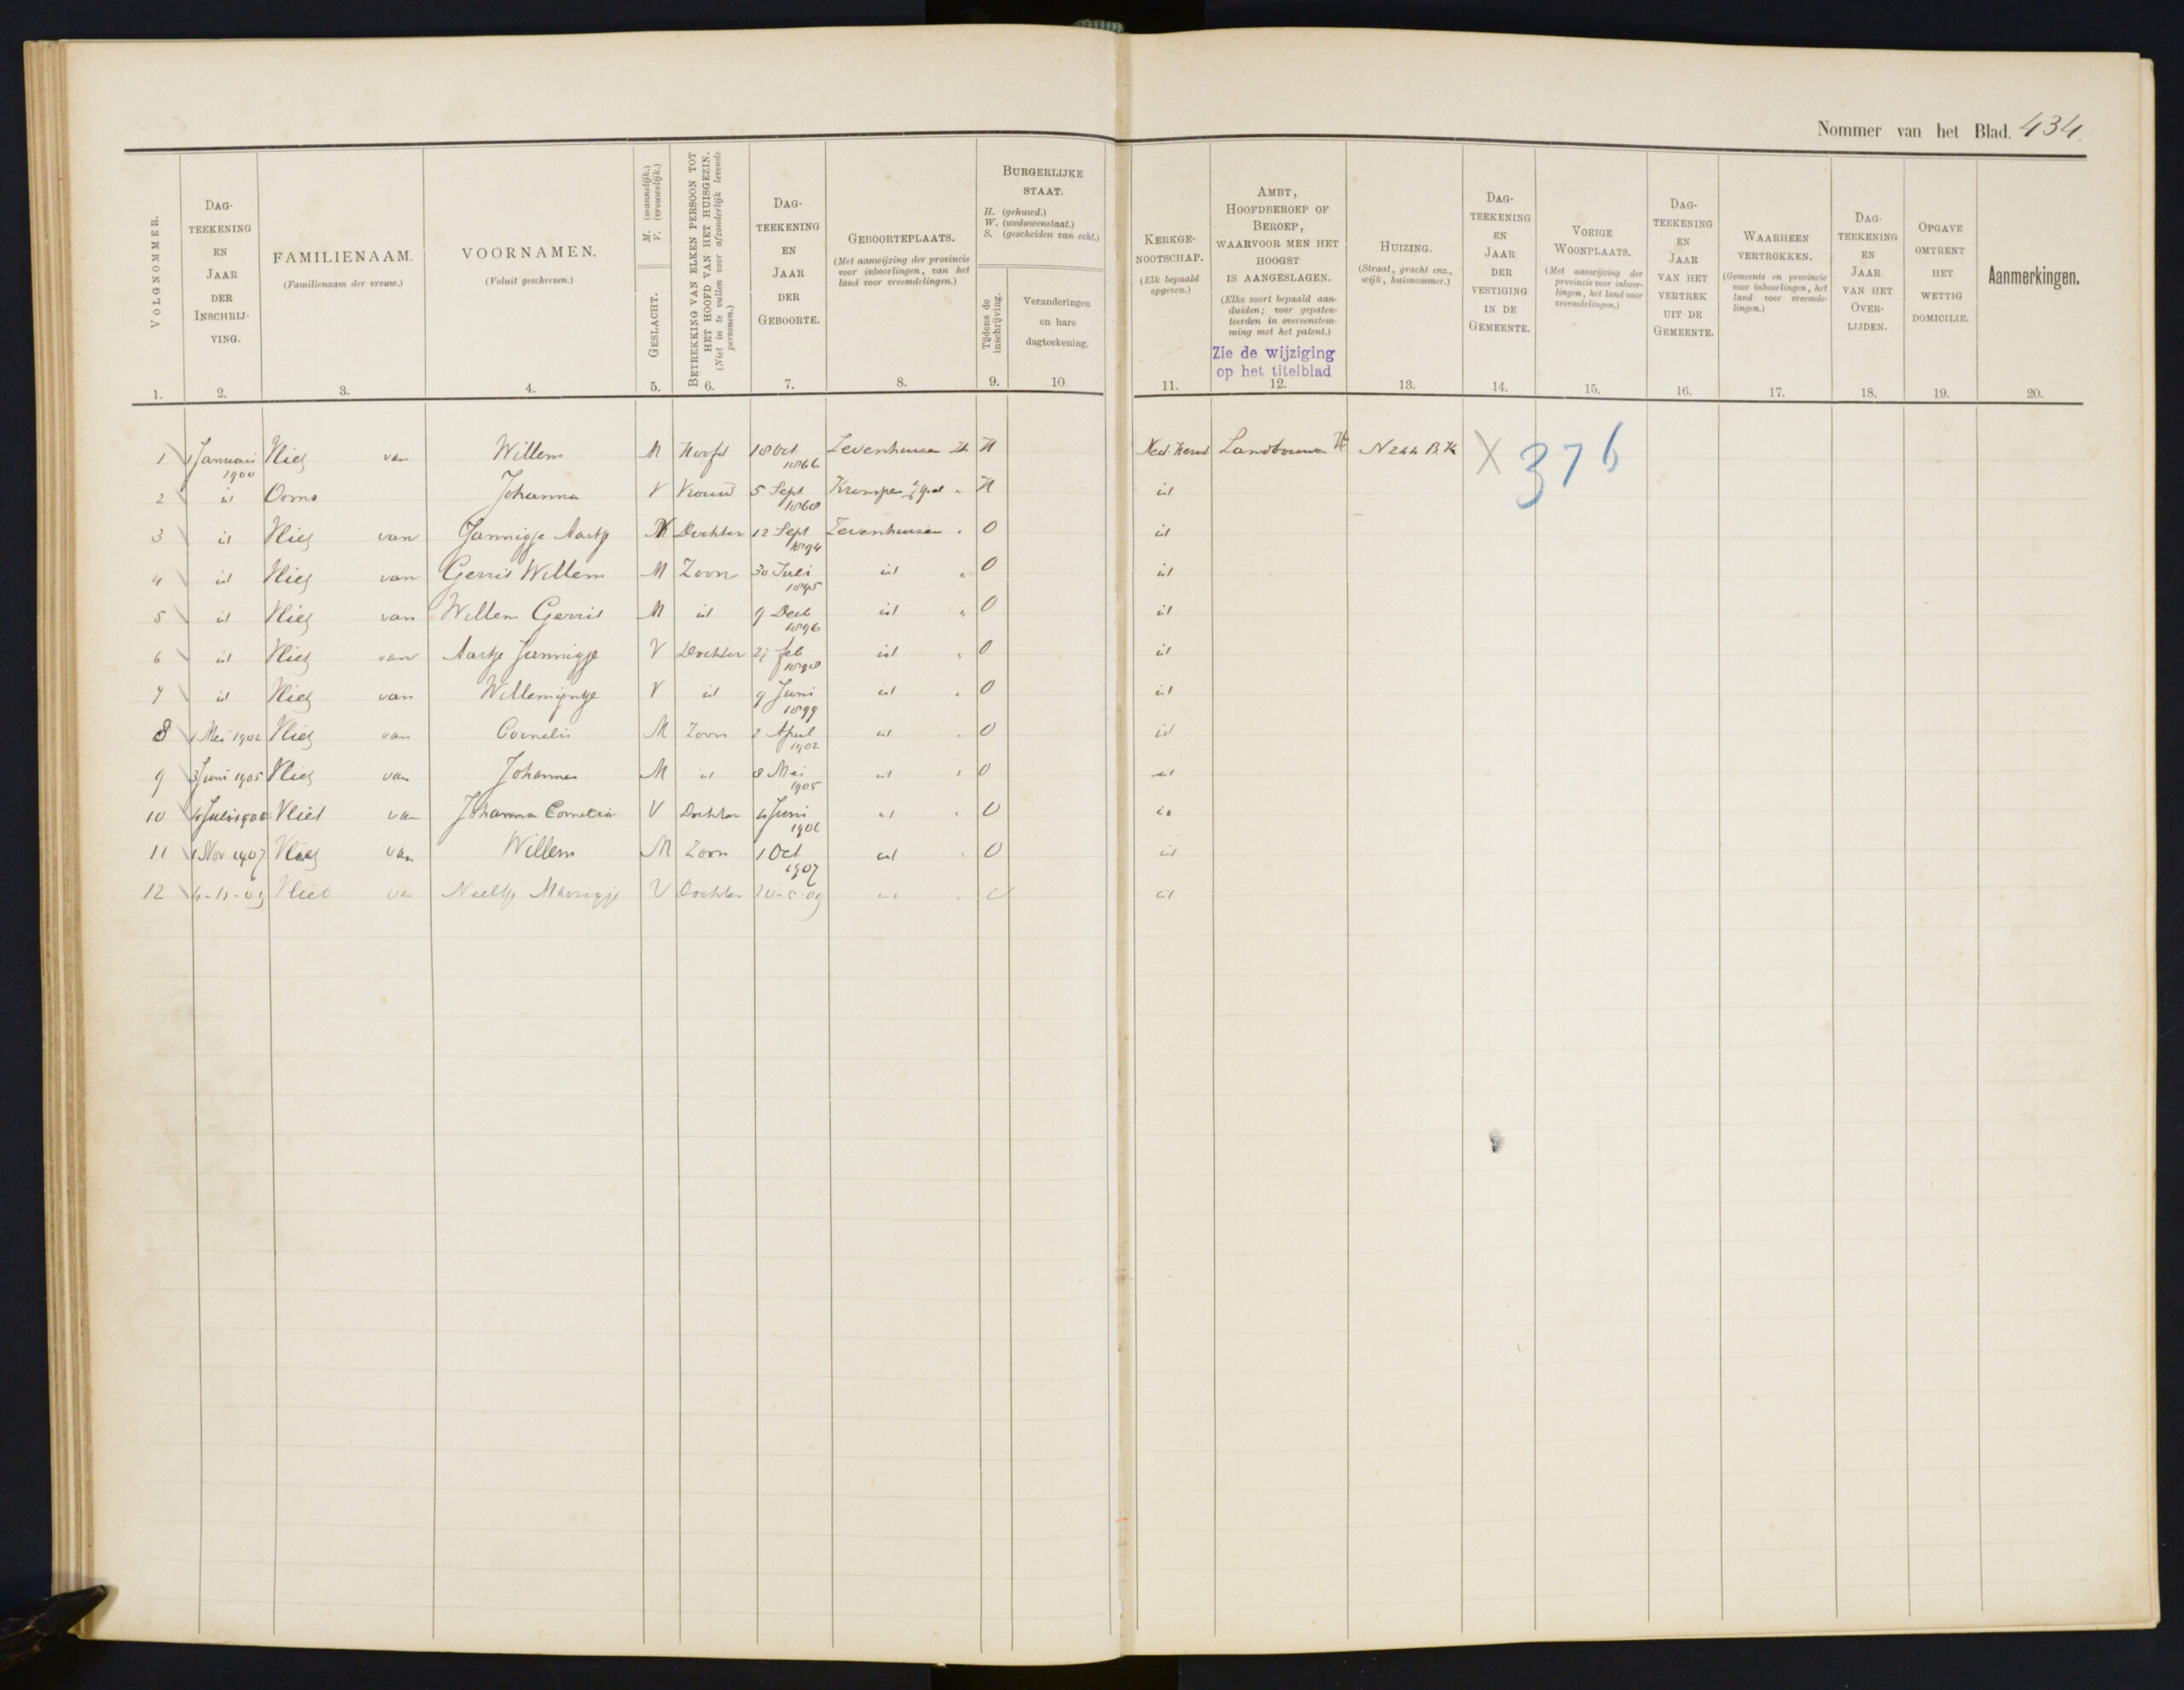 Nommer van het Blad. 434.
VOLGNOMMER.
1.
DAG-
TEEKENING
EN
JAAR
DER
INSCHRIJ-
VING.
2.
FAMILIENAAM.
(Familienaam der vrouw.)
3.
VOORNAMEN.
(Voluit geschreven.)
4.
GESLACHT.
M. (mannelijk.)
V. (vrouwelijk.)
5.
BETREKKING VAN ELKEN PERSOON TOT
HET HOOFD VAN HET HUISGEZIN.
(Niet in te vullen voor afzonderlijk levende
personen.)
6.
DAG-
TEEKENING
EN
JAAR
DER
GEBOORTE.
7.
GEBOORTEPLAATS.
(Met aanwijzing der provincie
voor inboorlingen, van het
land voor vreemdelingen.)
8.
BURGERLIJKE
STAAT.
H. (gehuwd.)
W. (weduwenstaat.)
S. (gescheiden van echt.)
Tijdens de
inschrijving.
9.
Veranderingen
en hare
dagteekening.
10.
KERKGE-
NOOTSCHAP.
(Elk bepaald
opgeven.)
11.
AMBT,
HOOFDBEROEP OF
BEROEP,
WAARVOOR MEN HET
HOOGST
IS AANGESLAGEN.
(Elke soort bepaald aan-
duiden; voor gepaten-
teerden in overeenstem-
ming met het patent.)
Zie de wijziging
op het titelblad
12.
HUIZING.
(Straat, gracht enz.,
wijk, huisnommer.)
13.
DAG-
TEEKENING
EN
JAAR
DER
VESTIGING
IN DE
GEMEENTE.
14.
VORIGE
WOONPLAATS.
(Met aanwijzing der
provincie voor inboor-
lingen, het land voor
vreemdelingen.)
15.
DAG-
TEEKENING
EN
JAAR
VAN HET
VERTREK
UIT DE
GEMEENTE.
16.
WAARHEEN
VERTROKKEN.
(Gemeente en provincie
voor inboorlingen, het
land voor vreemde-
lingen.)
17.
DAG-
TEEKENING
EN
JAAR
VAN HET
OVER-
LIJDEN.
18.
OPGAVE
OMTRENT
HET
WETTIG
DOMICILIE.
19.
Aanmerkingen.
20.
1 1 Januari 1900 Vliet van Willem M Hoofd 18 Oct 1866 Zevenhuizen Zh H Ned. Herv. Landbouwer H N 244 BK X 376
2 id Ooms Johanna V Vrouw 5 Sept 1868 Krimpen a/d Ijssel " H id
3 id Vliet van Jannigje Aartje V Dochter 12 Sept 1894 Zevenhuizen " O id
4 id Vliet van Gerrit Willem M Zoon 30 Juli 1895 id " O id
5 id Vliet van Willem Gerrit M id 9 Decb 1896 id " O id
6 id Vliet van Aartje Jannigje V Dochter 27 feb 1898 id " O id
7 id Vliet van Willemijntje V id 9 Juni 1899 id " O id
8 1 Mei 1902 Vliet van Cornelis M Zoon 2 April 1902 id " O id
9 3 Juni 1905 Vliet van Johannes M id 8 Mei 1905 id " O id
10 4 Juli 1906 Vliet van Johanna Cornelia V Dochter 4 Juni 1906 id " O id
11 1 Nov 1907 Vliet van Willem M Zoon 1 Oct 1907 id " O id
12 Vliet van Neeltje Marrigje V Dochter id " O id